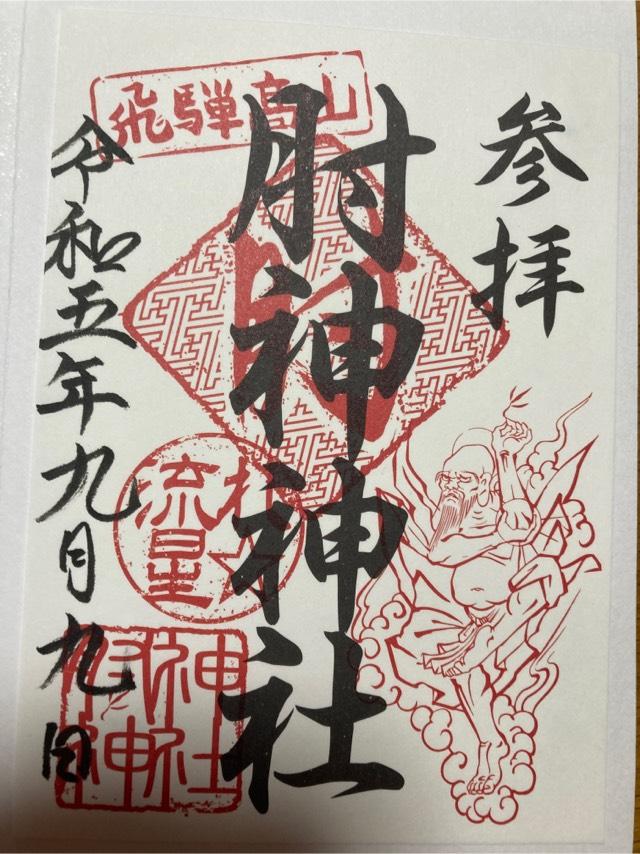 参拝
飛騨高山
肘神神社
流星
肘神
神社
令和五年九月九日